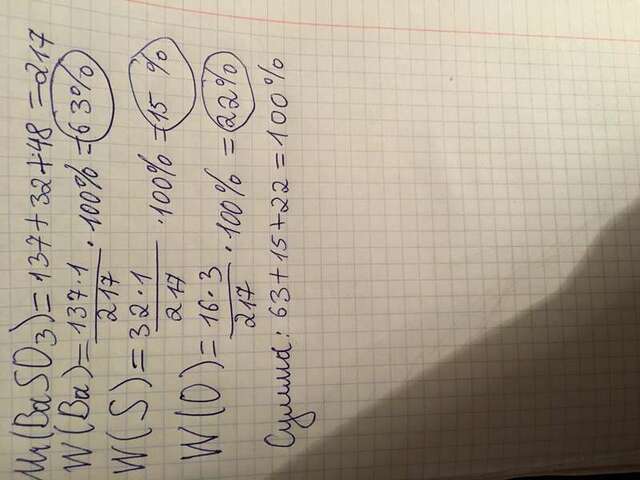 Mr(BaSO3)=137+32+48=217
W(Ba)=137·1/217·100%=63%
W(S)=32·1/217·100%=15%
W(O)=16·3/217·100%=22%
Сумма: 63+15+22=100%